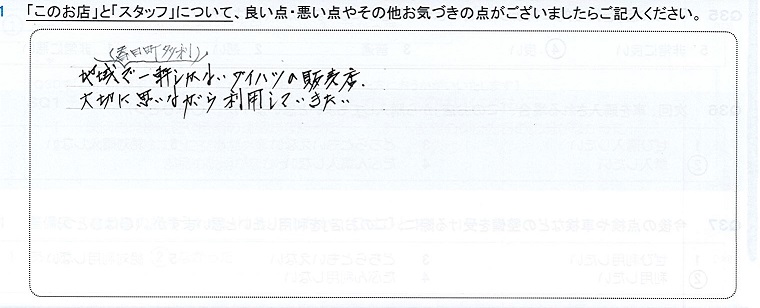 1 「このお店」と「スタッフ」について、良い点・悪い点やその他お気づきの点がございましたらご記入ください。
(春日町多利)
地域で一軒しかないダイハツの販売店.
大切に思いながら利用していきたい